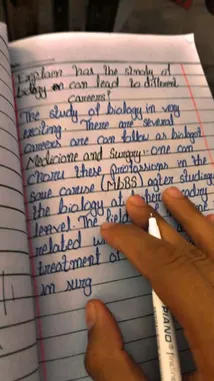 Explain has the study of
biology can lead to different
Careers?
The study of biology in very
exciting. There are several
careers are can follow as biologist
Medicione and Surgury: one can
these professions in the
same caruse (MBBS) after studing
the biology at
leavel. The field
related
treatment of
in surg
PIANO